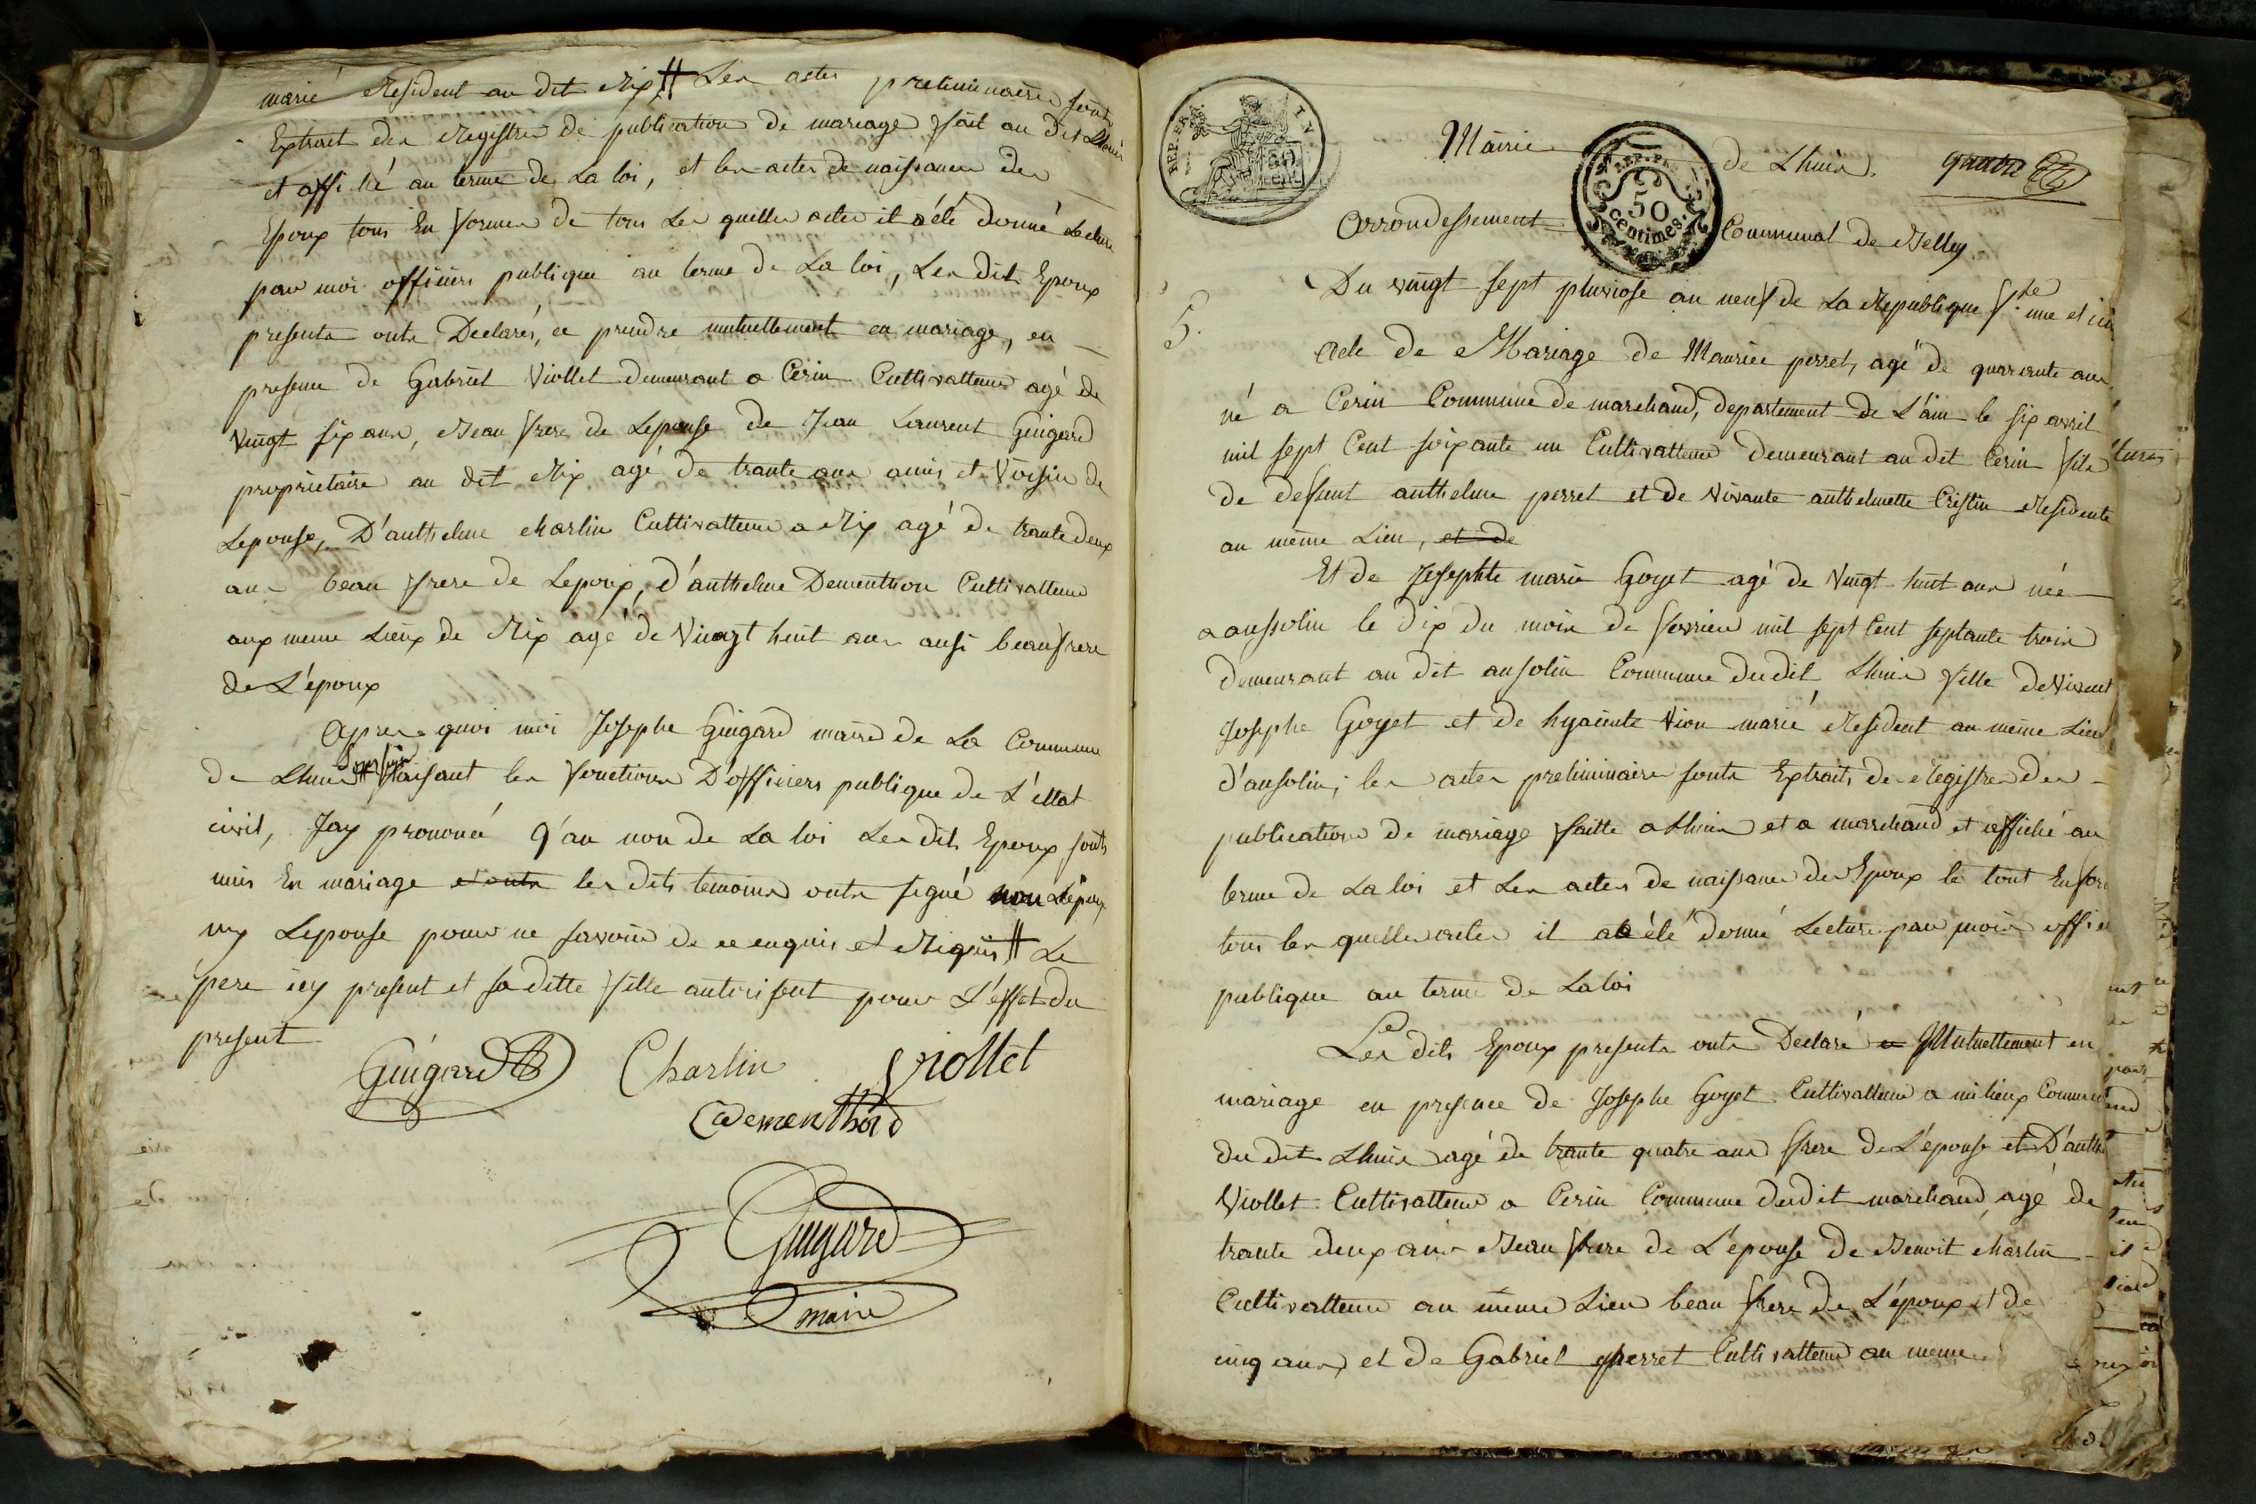 marié Resident au dit Rix # Les actes preliminaires sonts
Extrait des Registre de publication de mariage fait au dit Lhuis
et affiché au terme de La loi, et les actes de naissance des
Epoux tous En formes de tous Les quelles actes il a été donné Lecture
par moi officiers publique au terme de La loi, Les dits Epoux
presents onts Declarés, ce prendre mutuellement en mariage, en
presence de Gabriel Viollet demeurant a Cerin Cultivatteur agé de
Vingt six ans, Beau frere de Lepouse de Jean Laurent Guigard
proprietaire au dit Rix agé de trante ans amis et Voisin de
Lepouse, D'anthelme charlin Cultivatteur a Rix agé de trante deux
ans beau frere de Lepoux, d'anthelme Dementhon Cultivatteur
aux meme Lieux de Rix agé de Vingt huit ans ausi beau frere
de L'époux
Apres quoi moi Josephe Guigard maire de La Commune
de Lhuis # faisant les fonctions D'officiers publique de L'éttat
civil, Jay prononcé q'au non de La loi Les dits Epoux sonts
unis En mariage et onts les dits temoins onts signé non Lépoux
ny Lepouse pour ne savoir de ce enquis et Requis # Le
pere icy present et sa ditte fille autorisent pour L'éffet du
present
Guigard Charlin Viollet
Dementhon
Guigard
maire
REP. FRA.
50
cent.
Mairie de Lhuis. quatre
REP. FRA.
50
centimes.
Arrondessement Communal de Belley.
5.
Du vingt sept pluviose an neuf de La Republique f.se une et in
Acte de Mariage de Maurice perret, agé de quarante ans
né a Cerin Commune de marchand, departement de L'ain le six avril
mil sept Cent soixante un Cultivatteur Demeurant au dit Cerin fils
de defunt anthelme perret et de vivante anthelmette Cristin Residente
au même Lieu, et de
Et de Josephte marie Goyet agé de Vingt huit ans née
a ansolin le dix du mois de fevrier mil sept Cent septante trois
demeurant au dit ansolin Commune du dit Lhuis fille de Vivent
Josephe Goyet et de hyacinte Vion marié Resident au même Lieu
d'ansolin; les actes preliminaires sonts Extraits des Registres des
publications de mariage faitte a Lhuis et a marchand et affiché au
terme de La loi et Les actes de naissance des Epoux le tout En for
tous les quelles actes il a été donné Lecture par mois offici
publique au terme de La loi
Les dits Epoux presents onts Declaré ce Mutuellement en
mariage en presence de Josephe Goyet Cultivatteur a milieux Commune
du dit Lhuis agé de trante quatre ans frere de L'épouse et D'anth
Viollet Cultivatteur a Cerin Commune du dit marchand, agé de
trante deux ans Beau frere de L'épouse de Benoit charlin
Cultivatteur au même Lieu beau frere de L'époux et de
cinq ans, et de Gabriel perret Cultivatteur au meme